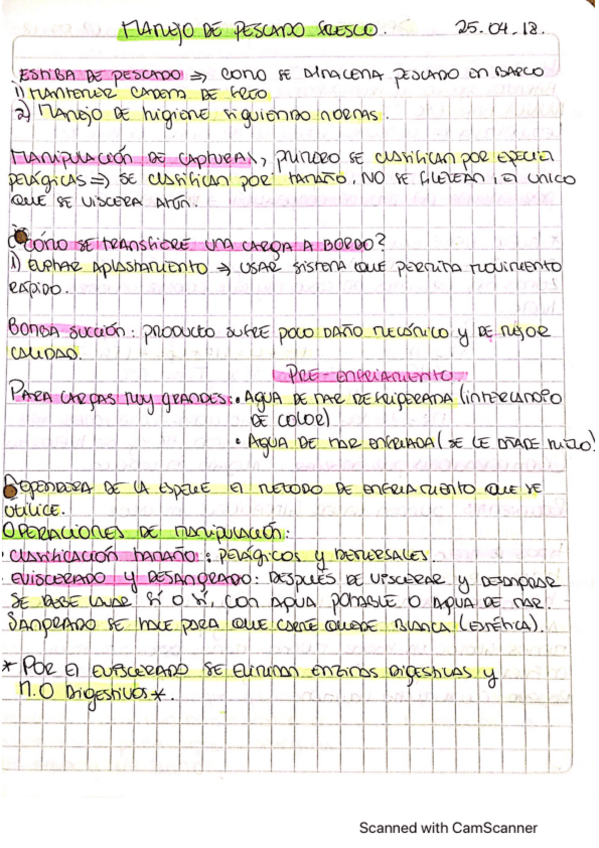 MANEJO DE PESCADO FRESCO. 25.04.18.
ESTIBA DE PESCADO ⇒ COMO SE ALMACENA PESCADO EN BARCO
1) MANTENER CADENA DE FRÍO
2) MANEJO DE HIGIENE SIGUIENDO NORMAS.
MANIPULACIÓN DE CAPTURAS, PRIMERO SE CLASIFICAN POR ESPECIE,
PELÁGICAS ⇒ SE CLASIFICAN POR TAMAÑO, NO SE FILETEAN, EL ÚNICO
QUE SE VISCERA ATÚN.
¿CÓMO SE TRANSFIERE UNA CARGA A BORDO?
1) EVITAR APLASTAMIENTO ⇒ USAR SISTEMA QUE PERMITA MOVIMIENTO
RÁPIDO.
BOMBA SUCCIÓN: PRODUCTO SUFRE POCO DAÑO MECÁNICO Y DE MEJOR
CALIDAD.
PRE-ENFRIAMIENTO.
PARA CARGAS MUY GRANDES: • AGUA DE MAR REFRIGERADA (INTERCAMBIO
DE CALOR)
• AGUA DE MAR ENFRIADA (SE LE AÑADE HIELO)
DEPENDERÁ DE LA ESPECIE EL MÉTODO DE ENFRIAMIENTO QUE SE
UTILICE.
OPERACIONES DE MANIPULACIÓN:
• CLASIFICACIÓN TAMAÑO: PELÁGICOS Y DEMERSALES.
• EVISCERADO Y DESANGRADO: DESPUÉS DE VISCERAR Y DESANGRAR
SE DEBE LAVAR SÍ O SÍ, CON AGUA POTABLE O AGUA DE MAR.
SANGRADO SE HACE PARA QUE CARNE QUEDE BLANCA (ESTÉTICA).
* POR EL EVISCERADO SE ELIMINAN ENZIMAS DIGESTIVAS Y
M.O DIGESTIVOS *.
Scanned with CamScanner